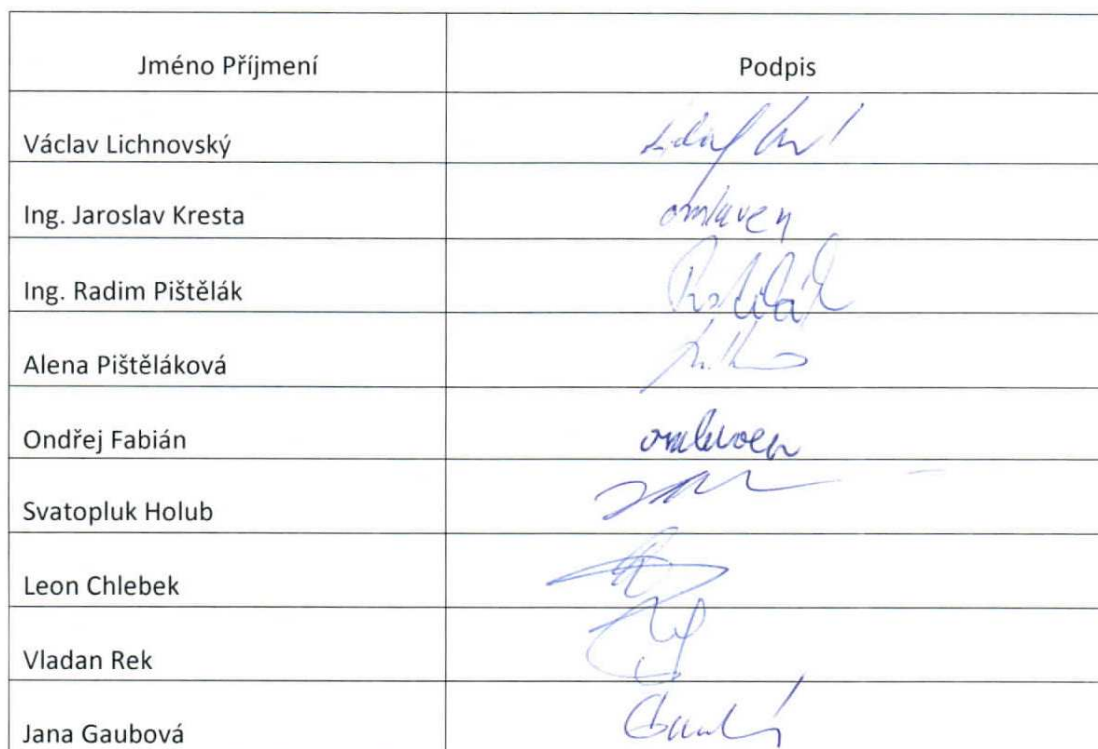 Jméno Příjmení Podpis
Václav Lichnovský
Ing. Jaroslav Kresta omluven
Ing. Radim Pištělák
Alena Pištěláková
Ondřej Fabián omluven
Svatopluk Holub
Leon Chlebek
Vladan Rek
Jana Gaubová